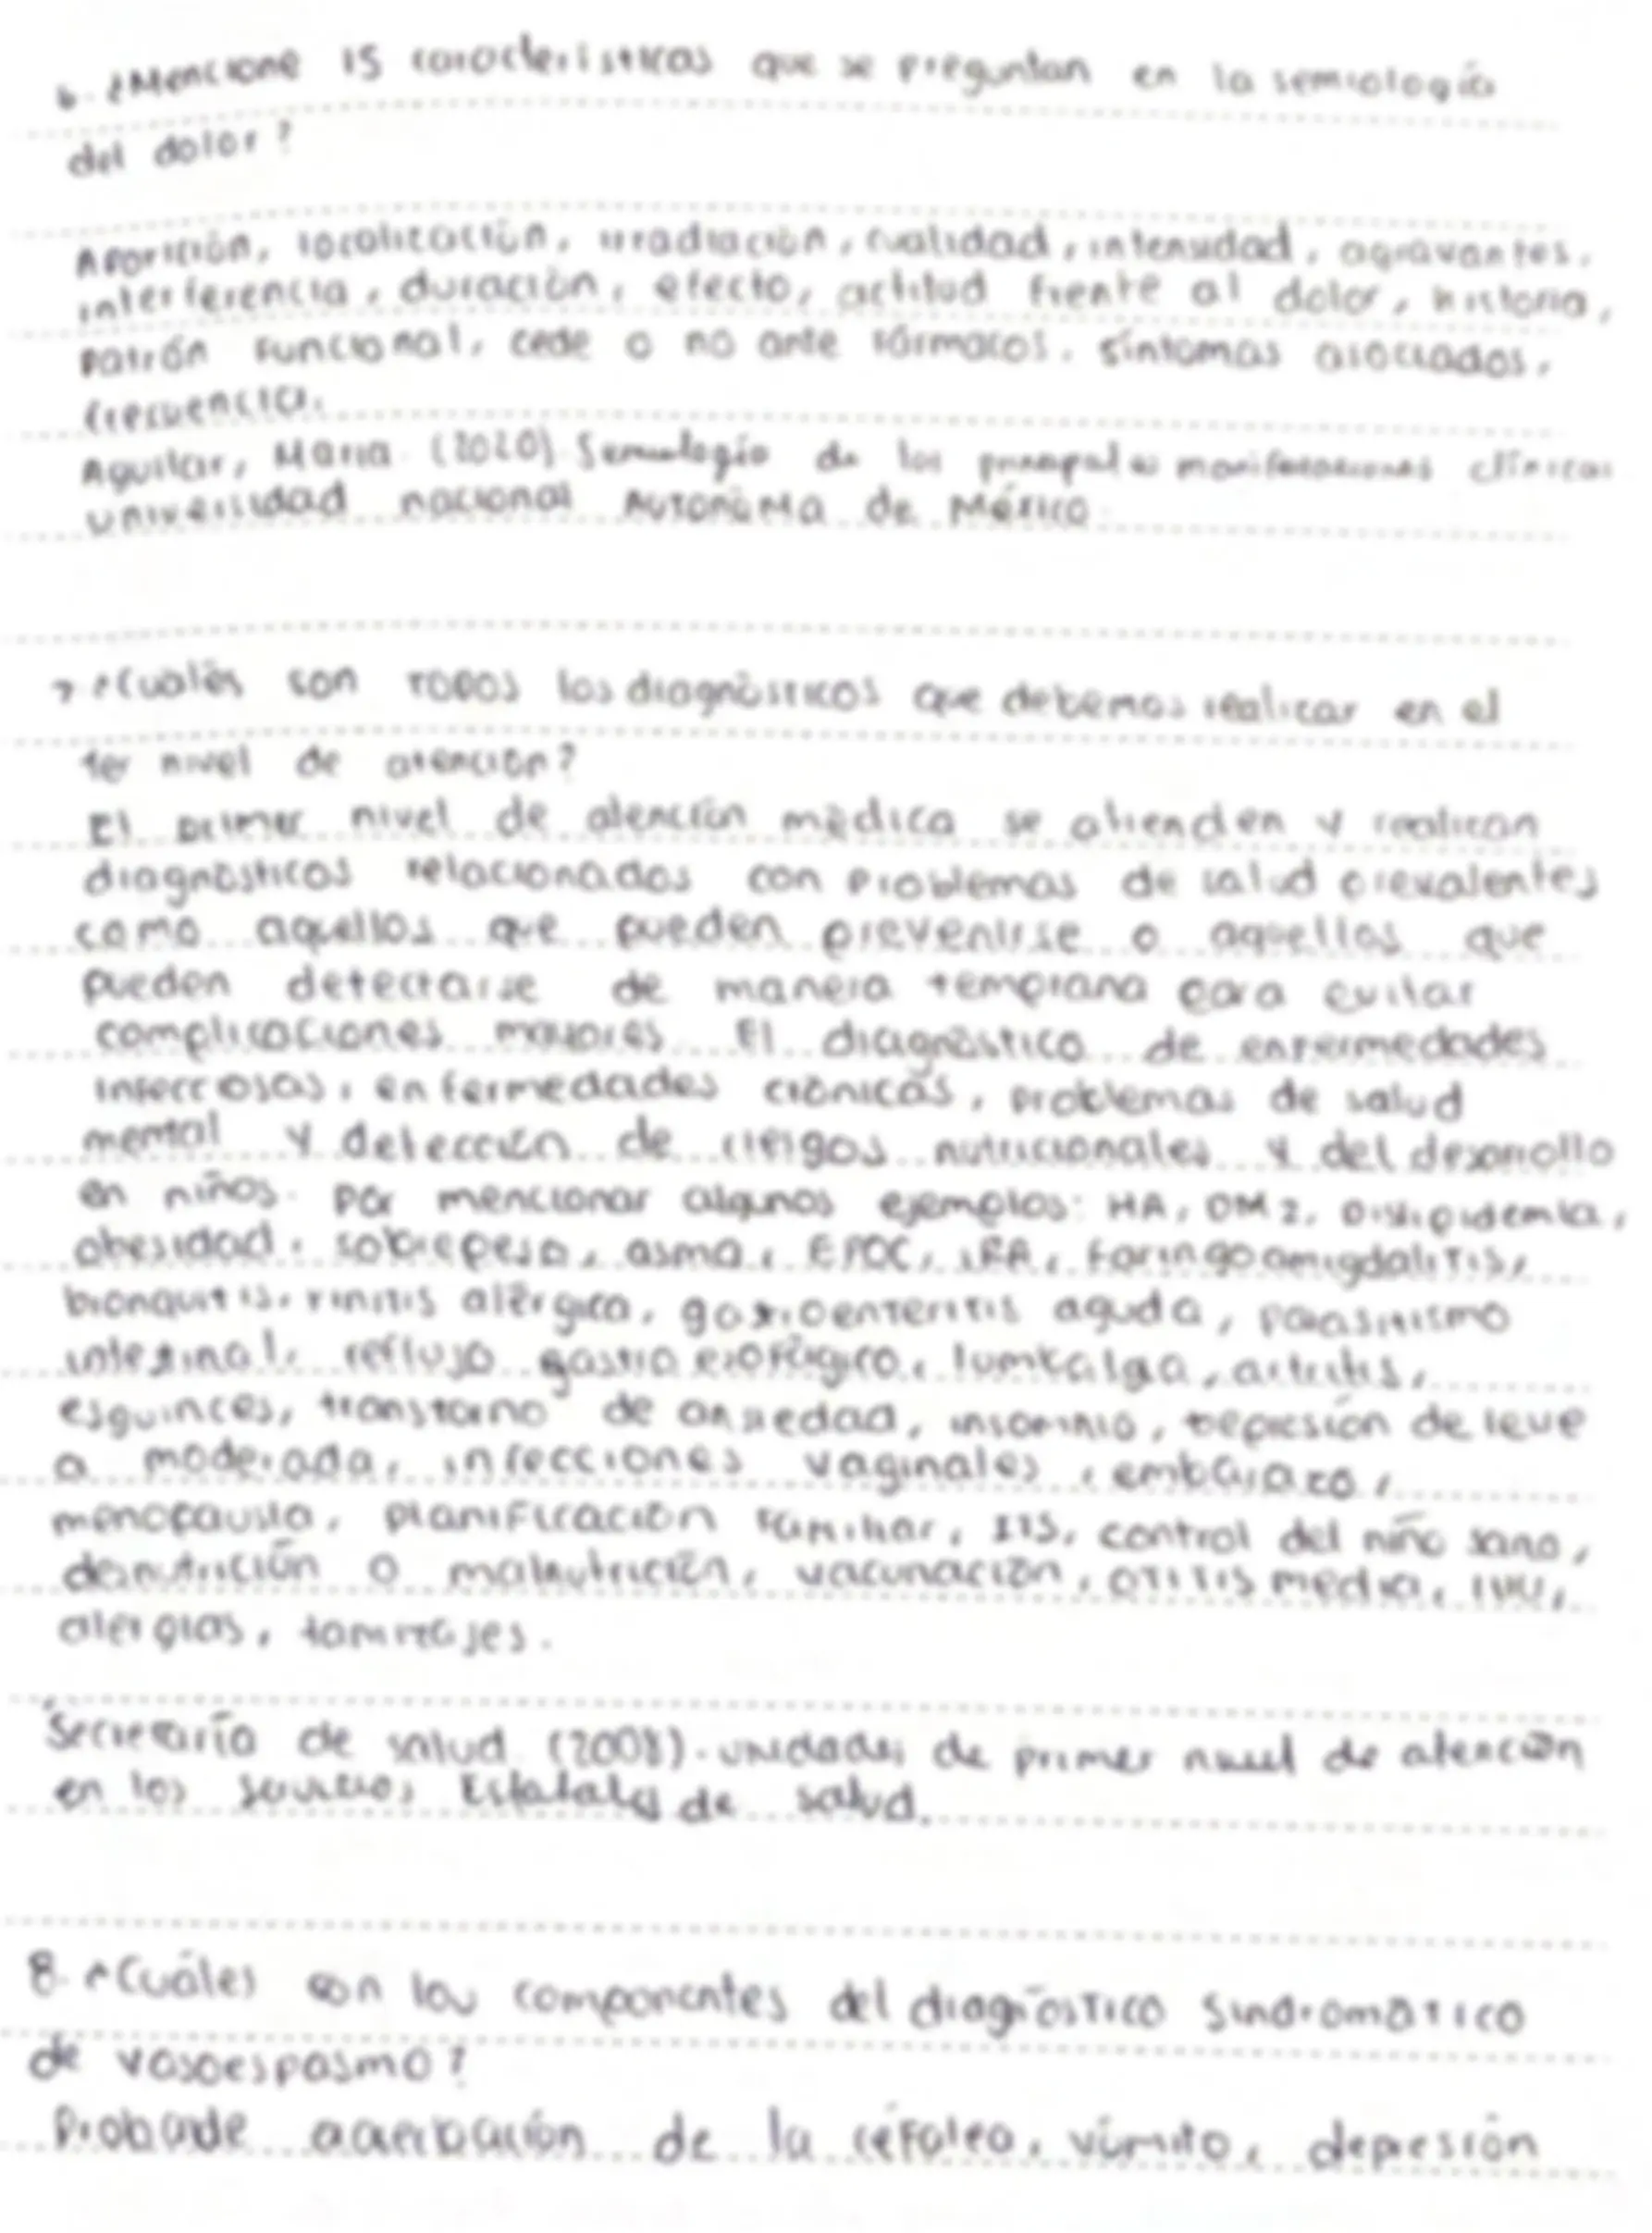 6. ¿Mencione 15 características que se preguntan en la semiología
del dolor?
Aparición, localización, irradiación, cualidad, intensidad, agravantes,
interferencia, duración, efecto, actitud frente al dolor, historia,
patrón funcional, cede o no ante fármacos, síntomas asociados,
frecuencia.
Aguilar, Maria (2020) Semiología de las principales manifestaciones clínicas
Universidad nacional Autonóma de México.
7. ¿Cuáles son TODOS los diagnósticos que debemos realizar en el
1er nivel de atención?
El primer nivel de atención médica se atienden y realizan
diagnósticos relacionados con problemas de salud prevalentes
como aquellos que pueden prevenirse o aquellos que
pueden detectarse de manera temprana para evitar
complicaciones mayores. El diagnóstico de enfermedades
infecciosas, enfermedades crónicas, problemas de salud
mental y detección de riesgos nutricionales y del desarrollo
en niños. Por mencionar algunos ejemplos: HA, DM2, Dislipidemia,
obesidad, sobrepeso, asma, EPOC, IRA, Faringoamigdalitis,
bronquitis, rinitis alérgica, gastroenteritis aguda, parasitismo
intestinal, reflujo gastro esofágico, lumbalgia, artritis,
esguinces, transtorno de ansiedad, insomnio, depresión de leve
a moderada, infecciones vaginales, embarazo,
menopausia, planificación familiar, ITS, control del niño sano,
desnutrición o malnutrición, vacunación, OTITIS media, IVU,
alergias, tamizajes.
Secretaría de salud (2008). Unidades de primer nivel de atención
en los Servicios Estatales de salud.
8. ¿Cuáles son los componentes del diagnóstico Sindromático
de vasoespasmo?
Probable exacerbación de la céfalea, vómito, depresión